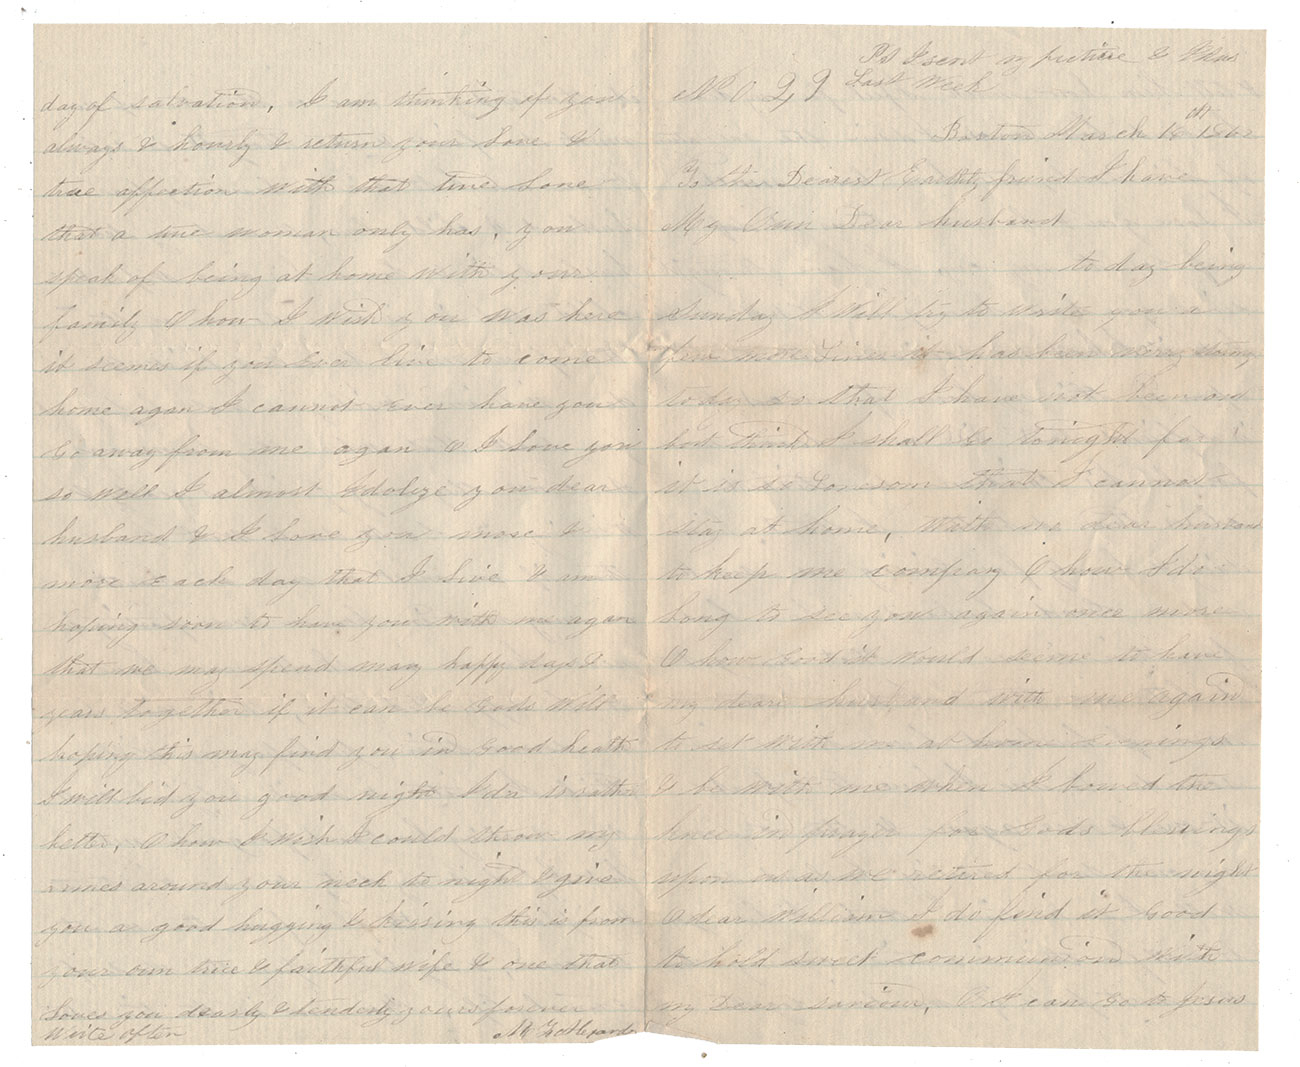 PS I sent my picture & Idas
Last Week
No 29
Barton March 16th 1862
To the Dearest Earthly friend I have
My Own Dear husband
to day being
Sunday I Will try to Write you a
few more Lines it has been very stormy
today so that I have not been out
but think I shall Go tonight for
it is so Lonesom that I cannot
stay at home, With no dear husband
to keep me company O how I do
Long to see you again once more
O how Good it Would seeme to have
my dear husband with me again
to set With me at home evenings
& be With me when I bowed the
knee in prayer for Gods blessings
upon us as we retired for the night
O dear William I do find it Good
to hold sweet communion With
my Dear saviour, O I can Go to Jesus
day of salvation, I am thinking of you
always & hourly & return your Love &
true affection With that true Love
that a true woman only has, you
speak of being at home With your
family O how I Wish you Was here
it seemes if you Ever Live to come
home agan I cannot Ever have you
Go away from me agan O I Love you
so Well I almost Idolize you dear
husband & I Love you more &
more Each day that I Live & am
hoping soon to have you With me agan
that we may spend many happy days &
years together if it can be Gods Will
hoping this may find you in Good heath
I Will bid you good night Ida is rather
better, O how I Wish I could throw my
armes around your neck to night & give
you a good hugging & kissing this is from
your own true & faithful wife & one that
Loves you dearly & tenderly yours forever
Write often